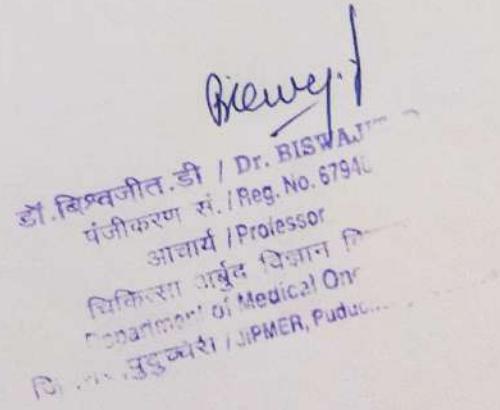 डॉ.बिश्वजीत.डी / Dr. BISWAJIT
पंजीकरण सं. / Reg. No. 6794
आचार्य / Professor
चिकित्सा अर्बुद विज्ञान
Department of Medical
पुदुच्चेरी / JIPMER,